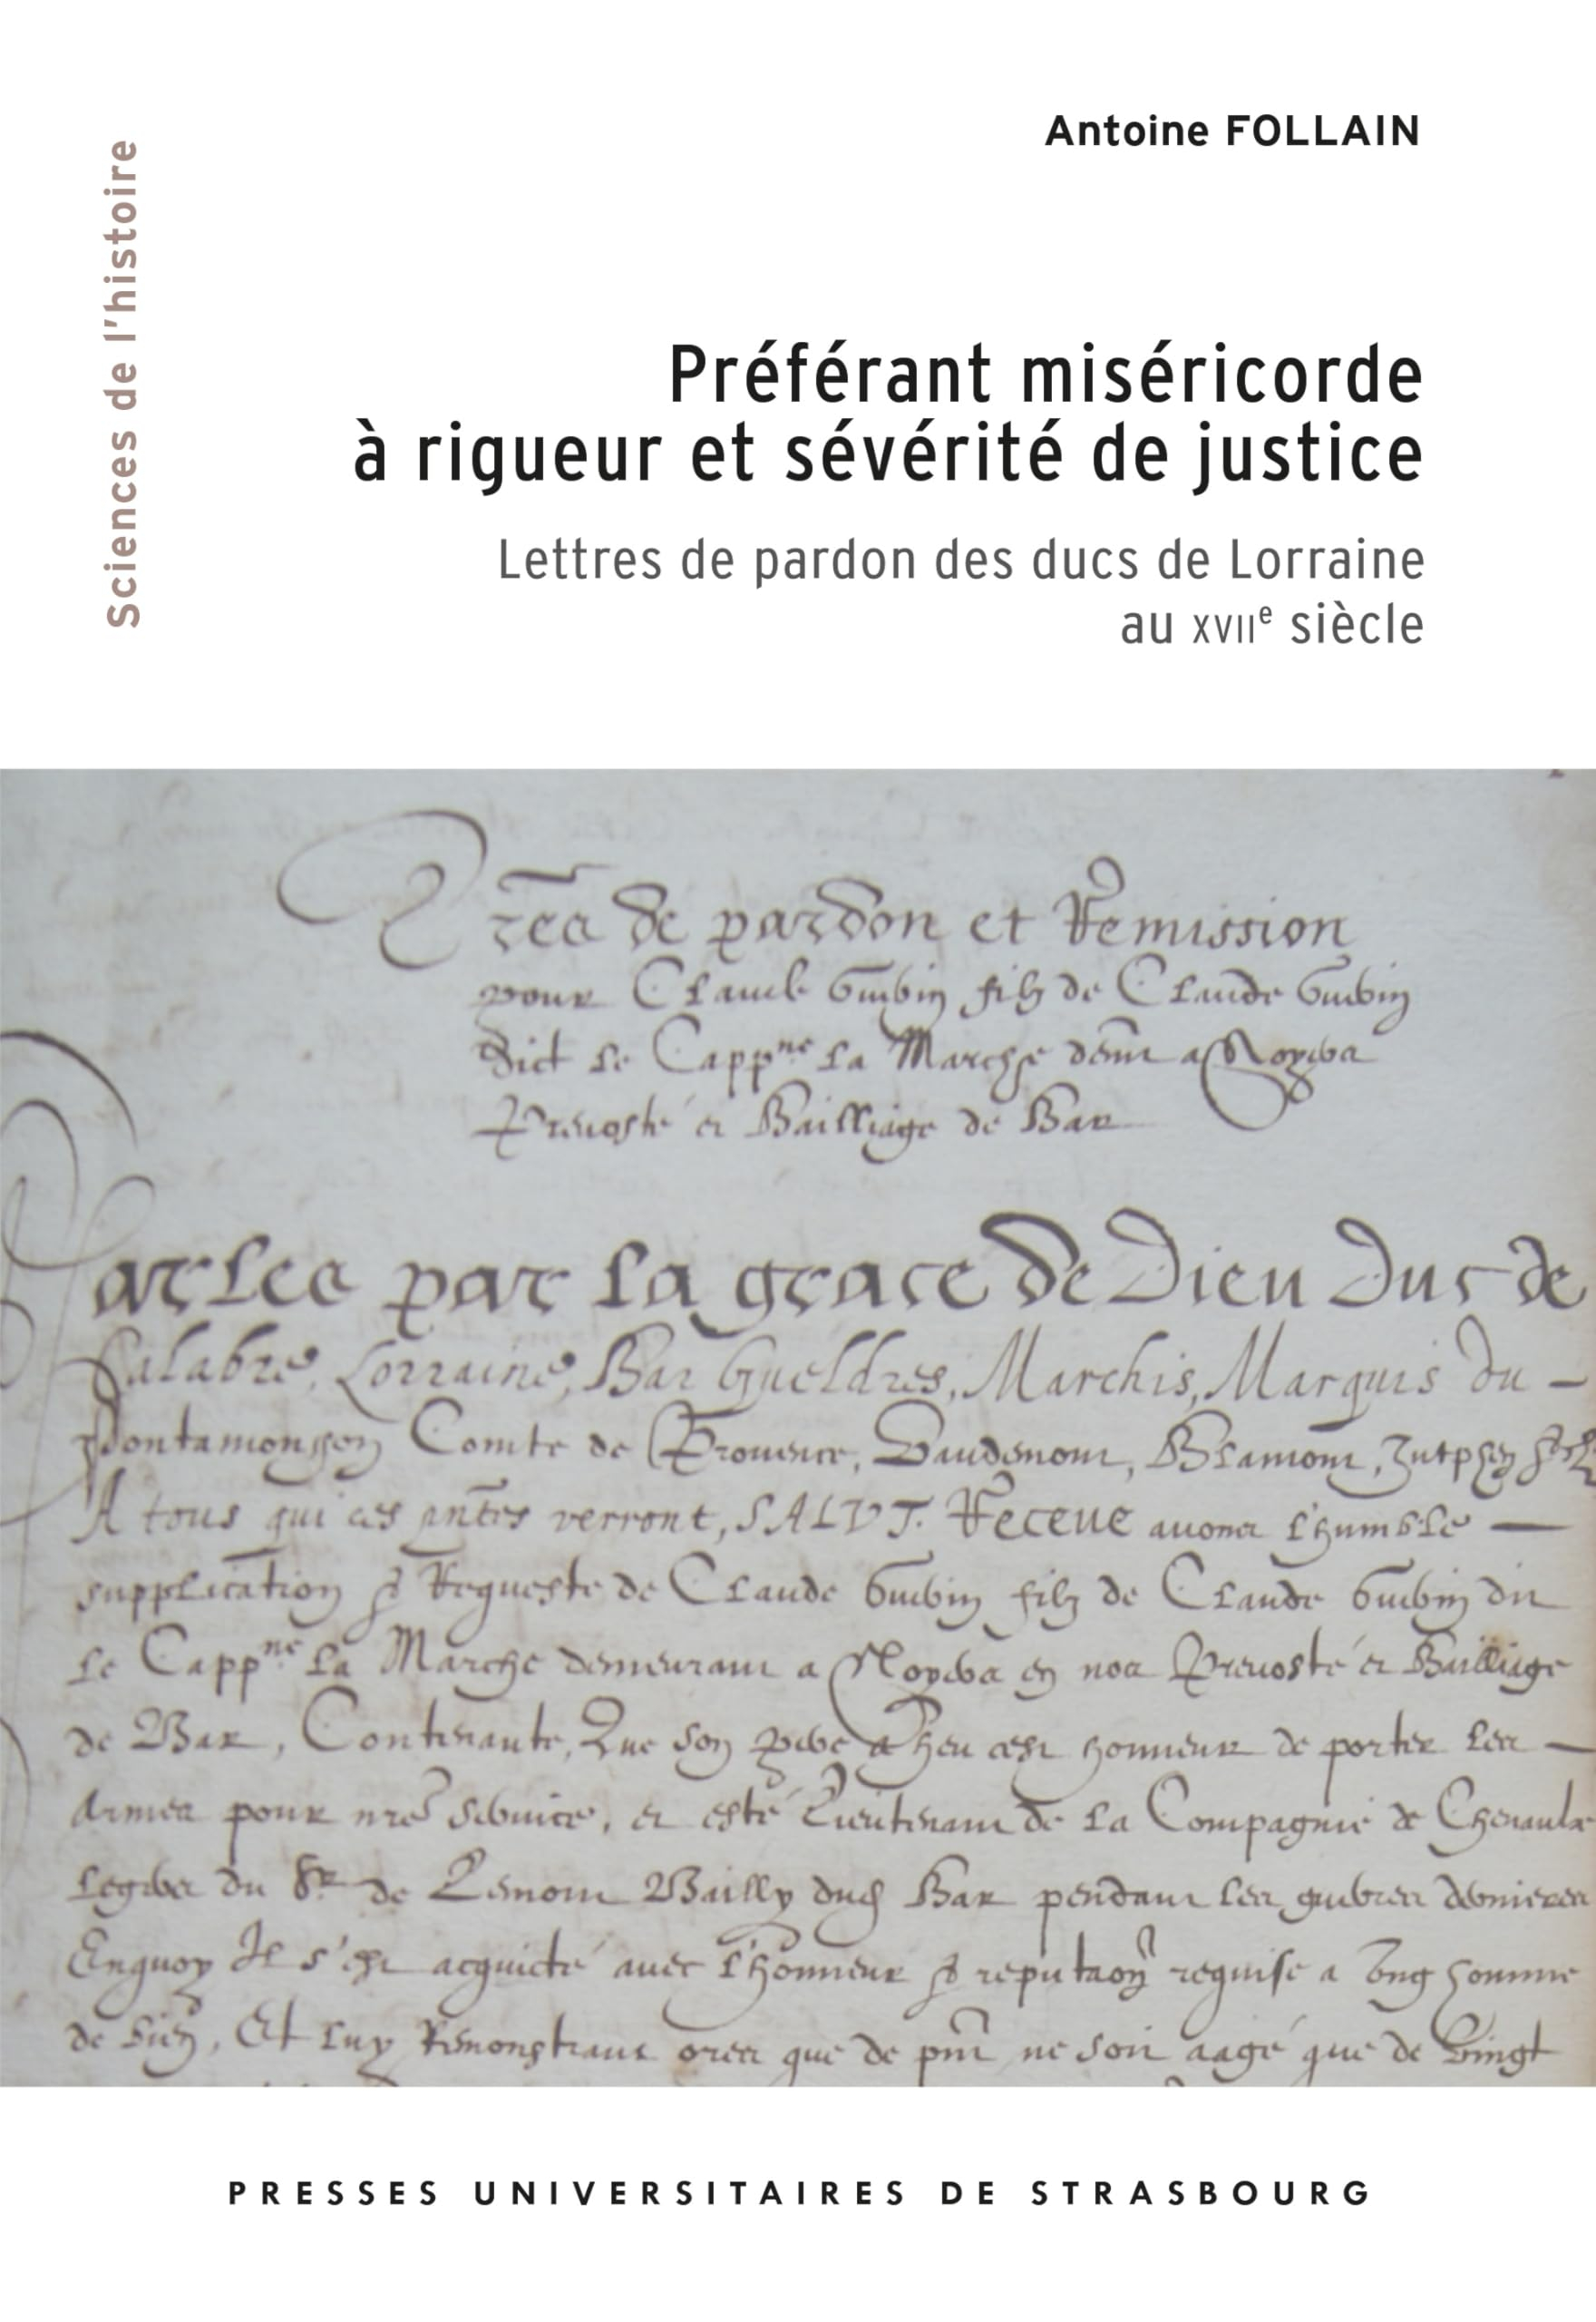 Antoine FOLLAIN
Sciences de l'histoire
Préférant miséricorde
à rigueur et sévérité de justice
Lettres de pardon des ducs de Lorraine
au XVIIe siècle
de pardon et Remission
pour Claude filz de Claude
dict le Cappne la Marche a
Prevosté et Bailliage de Bar
arles par la grace de Dieu Duc de
Calabre, Lorraine, Bar Gueldres, Marchis, Marquis du –
Pontamousson Comte de Provence, Vaudemont, Blamont, Zutphen
A tous qui ces pntes verront, SALVT. Receue avons l'humble —
supplication & Requeste de Claude filz de Claude dit
le Cappne la Marche demeurant a en nos Prevosté et Bailliage
de Bar, Contenante, Que son pere a heu cest honneur de porter les —
armes pour nre service, et esté Lieutenant de la Compagnie de Chevaulx
legers du Sr de Bailly dud Bar pendant les guerres dernieres
Enquoy Il s'est acquicté avec l'honneur & reputaon requise a ung homme
de bien, Et luy Remonstrant ores que de pnt ne soit aagé que de vingt
PRESSES UNIVERSITAIRES DE STRASBOURG